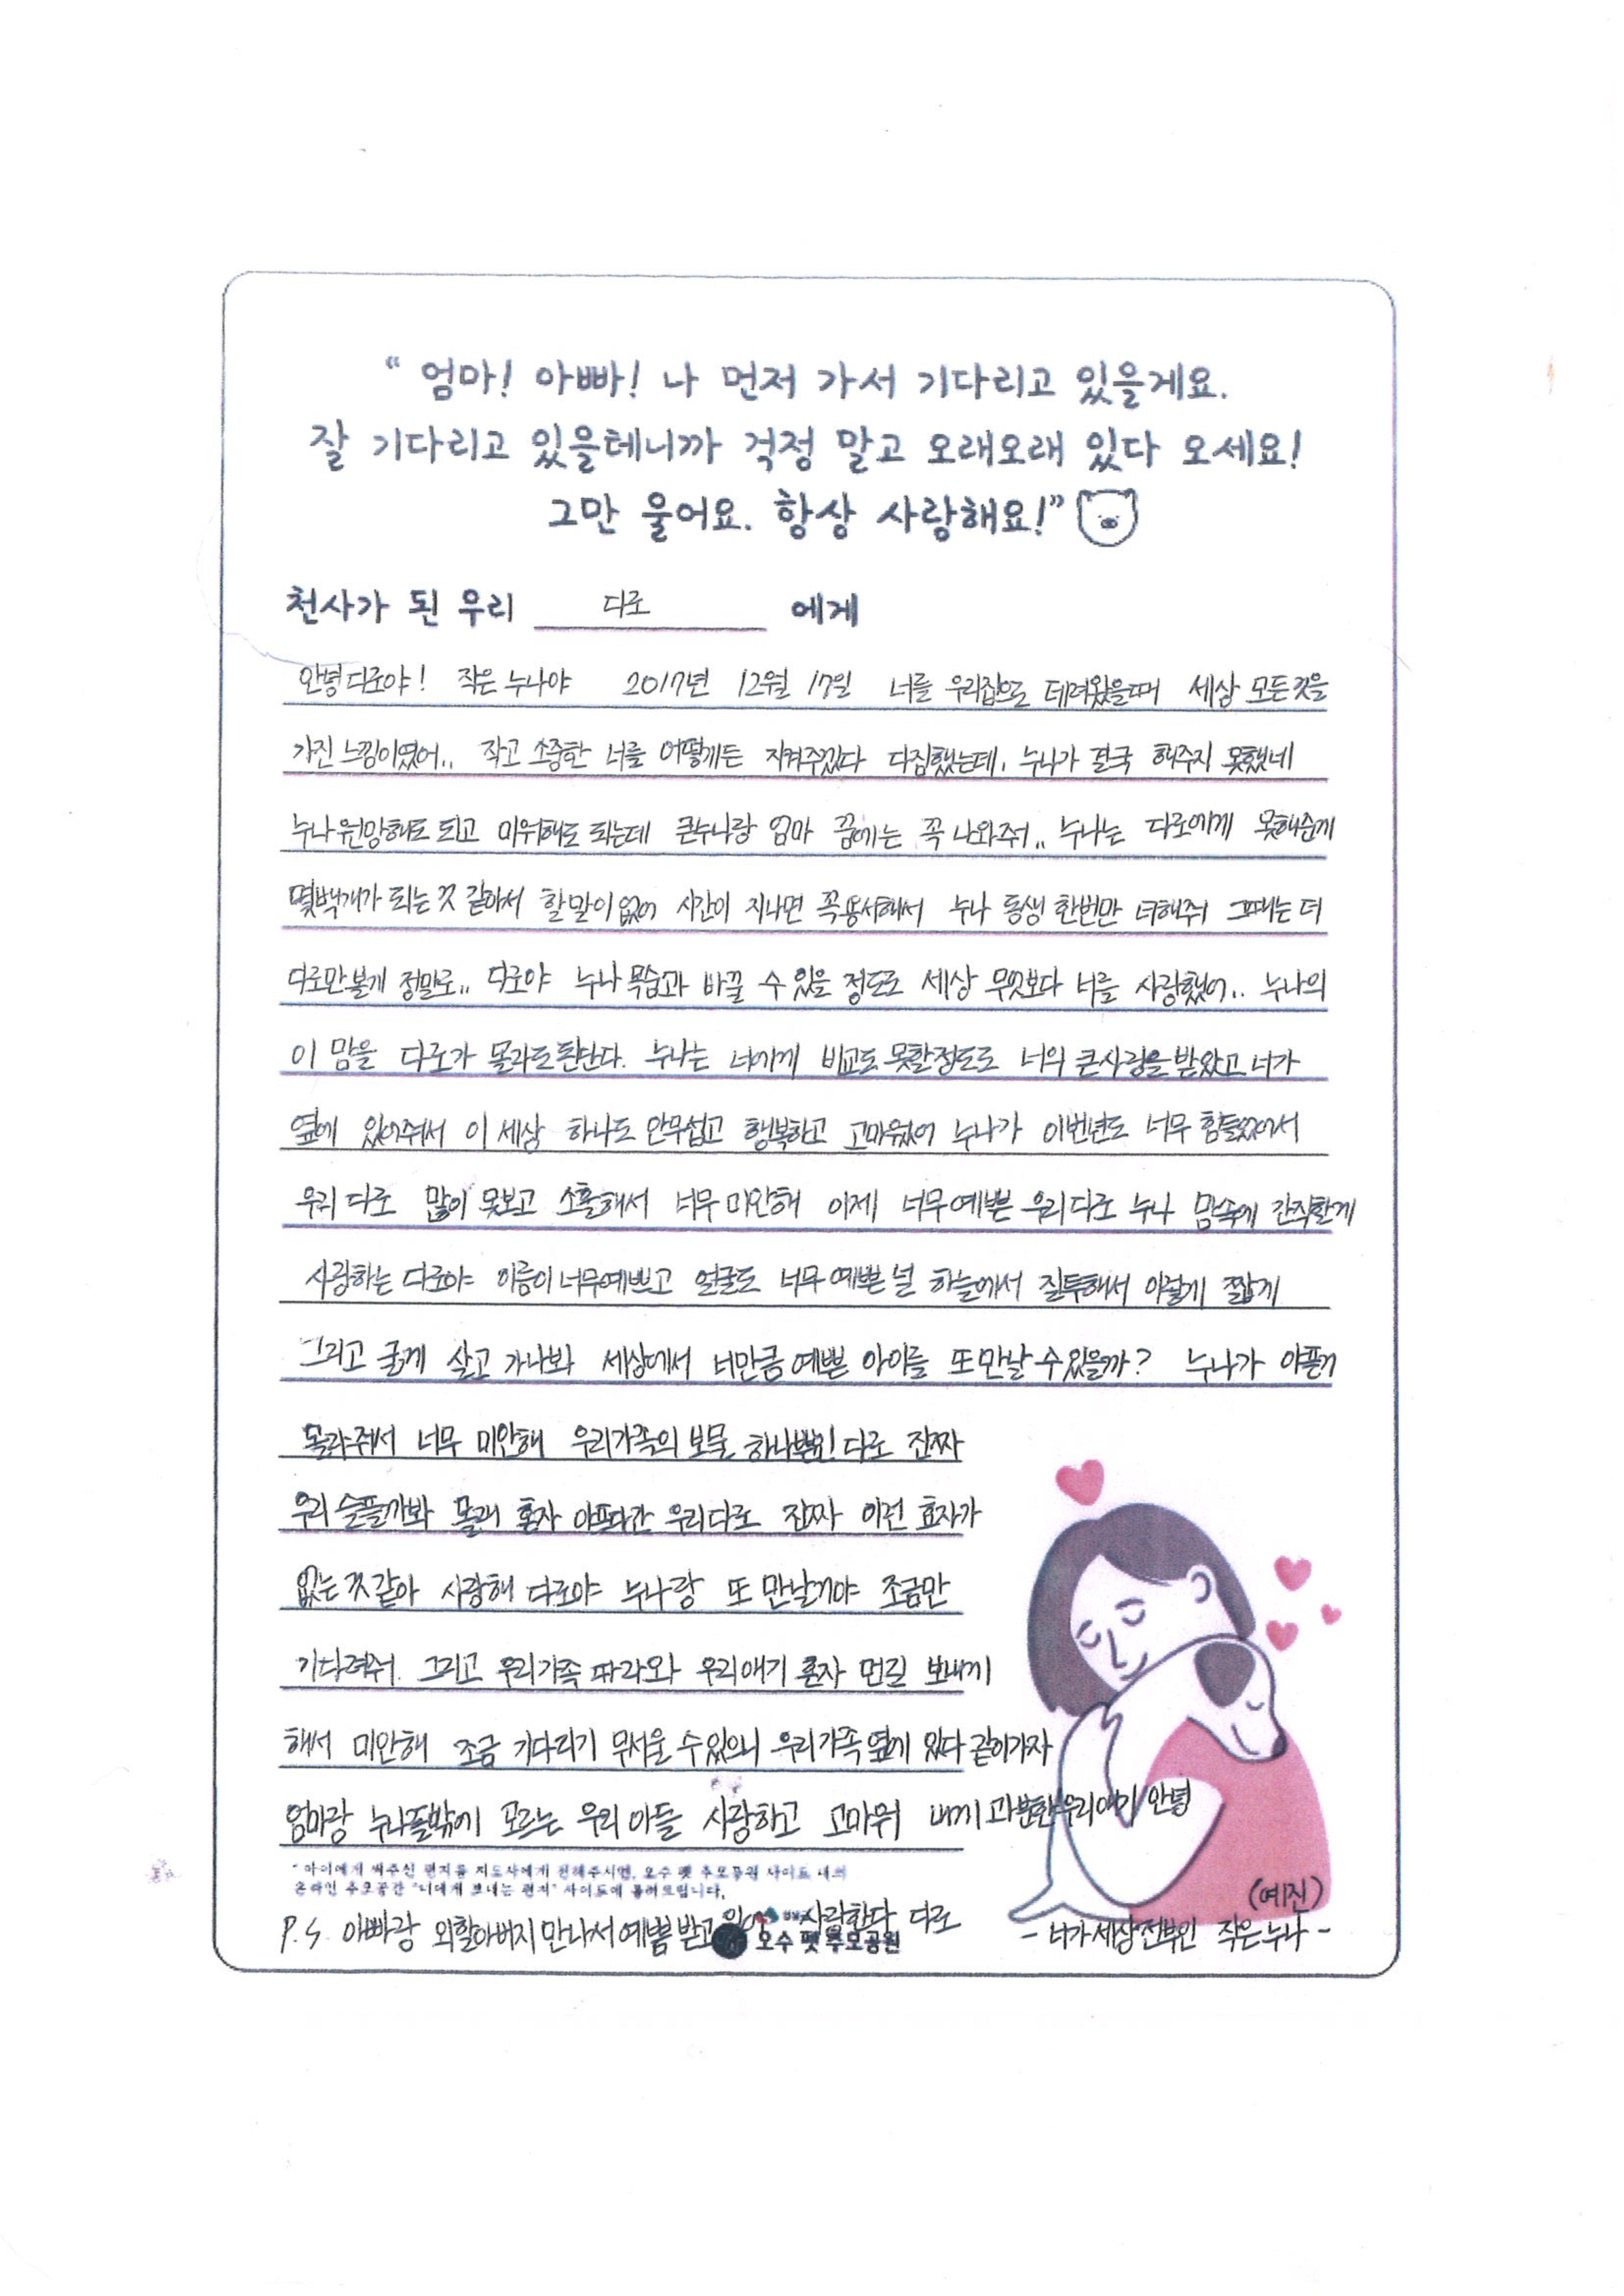 “ 엄마! 아빠! 나 먼저 가서 기다리고 있을게요.
잘 기다리고 있을테니까 걱정 말고 오래오래 있다 오세요!
그만 울어요. 항상 사랑해요!”
천사가 된 우리 디로 에게
안녕 디로야! 작은 누나야 2017년 12월 17일 너를 우리집으로 데려왔을때 세상 모든것을
가진 느낌이였어.. 작고 소중한 너를 어떻게든 지켜주겠다 다짐했는데, 누나가 결국 해주지 못했네
누나 원망해도 되고 미워해도 되는데 큰누나랑 엄마 꿈에는 꼭 나와줘.. 누나는 디로에게 못해준게
몇백개가 되는 것 같아서 할말이 없어 시간이 지나면 꼭 용서해서 누나 동생 한번만 더해줘 그때는 더
디로만 볼게 정말로.. 디로야 누나 목숨과 바꿀 수 있을 정도로 세상 무엇보다 너를 사랑했어.. 누나의
이 맘을 디로가 몰라도 된단다. 누나는 너에게 비교도 못할정도로 너의 큰사랑을 받았고 너가
옆에 있어줘서 이 세상 하나도 안무섭고 행복하고 고마웠어 누나가 이번년도 너무 힘들었어서
우리 디로 많이 못보고 소홀해서 너무 미안해 이제 너무 예쁜 우리 디로 누나 맘속에 간직할게
사랑하는 디로야 이름이 너무 예쁘고 얼굴도 너무 예쁜 널 하늘에서 질투해서 이렇게 짧게
그리고 굵게 살고 가나봐 세상에서 너만큼 예쁜 아이를 또 만날 수 있을까? 누나가 아픈거
몰라줘서 너무 미안해 우리가족의 보물 하나뿐인 디로 진짜
우리 슬플까봐 몰래 혼자 아프다간 우리 디로 진짜 이런 효자가
없는 것 같아 사랑해 디로야 누나랑 또 만날거야 조금만
기다려줘. 그리고 우리가족 따라와 우리애기 혼자 먼길 보내게
해서 미안해 조금 기다리기 무서울 수 있으니 우리가족 옆에 있다 같이가자
엄마랑 누나들밖에 모르는 우리 아들 사랑하고 고마워 내게 과분한 우리애기 안녕
- 아이에게 써주신 편지를 지도사에게 전해주시면, 오수 펫 추모공원 사이트 내의
온라인 추모공간 "너에게 보내는 편지" 사이트에 올려드립니다.
(예진)
P.S 아빠랑 외할아버지 만나서 예쁨 받고 사랑한다 디로
- 너가 세상 전부인 작은 누나 -
오수 펫 추모공원